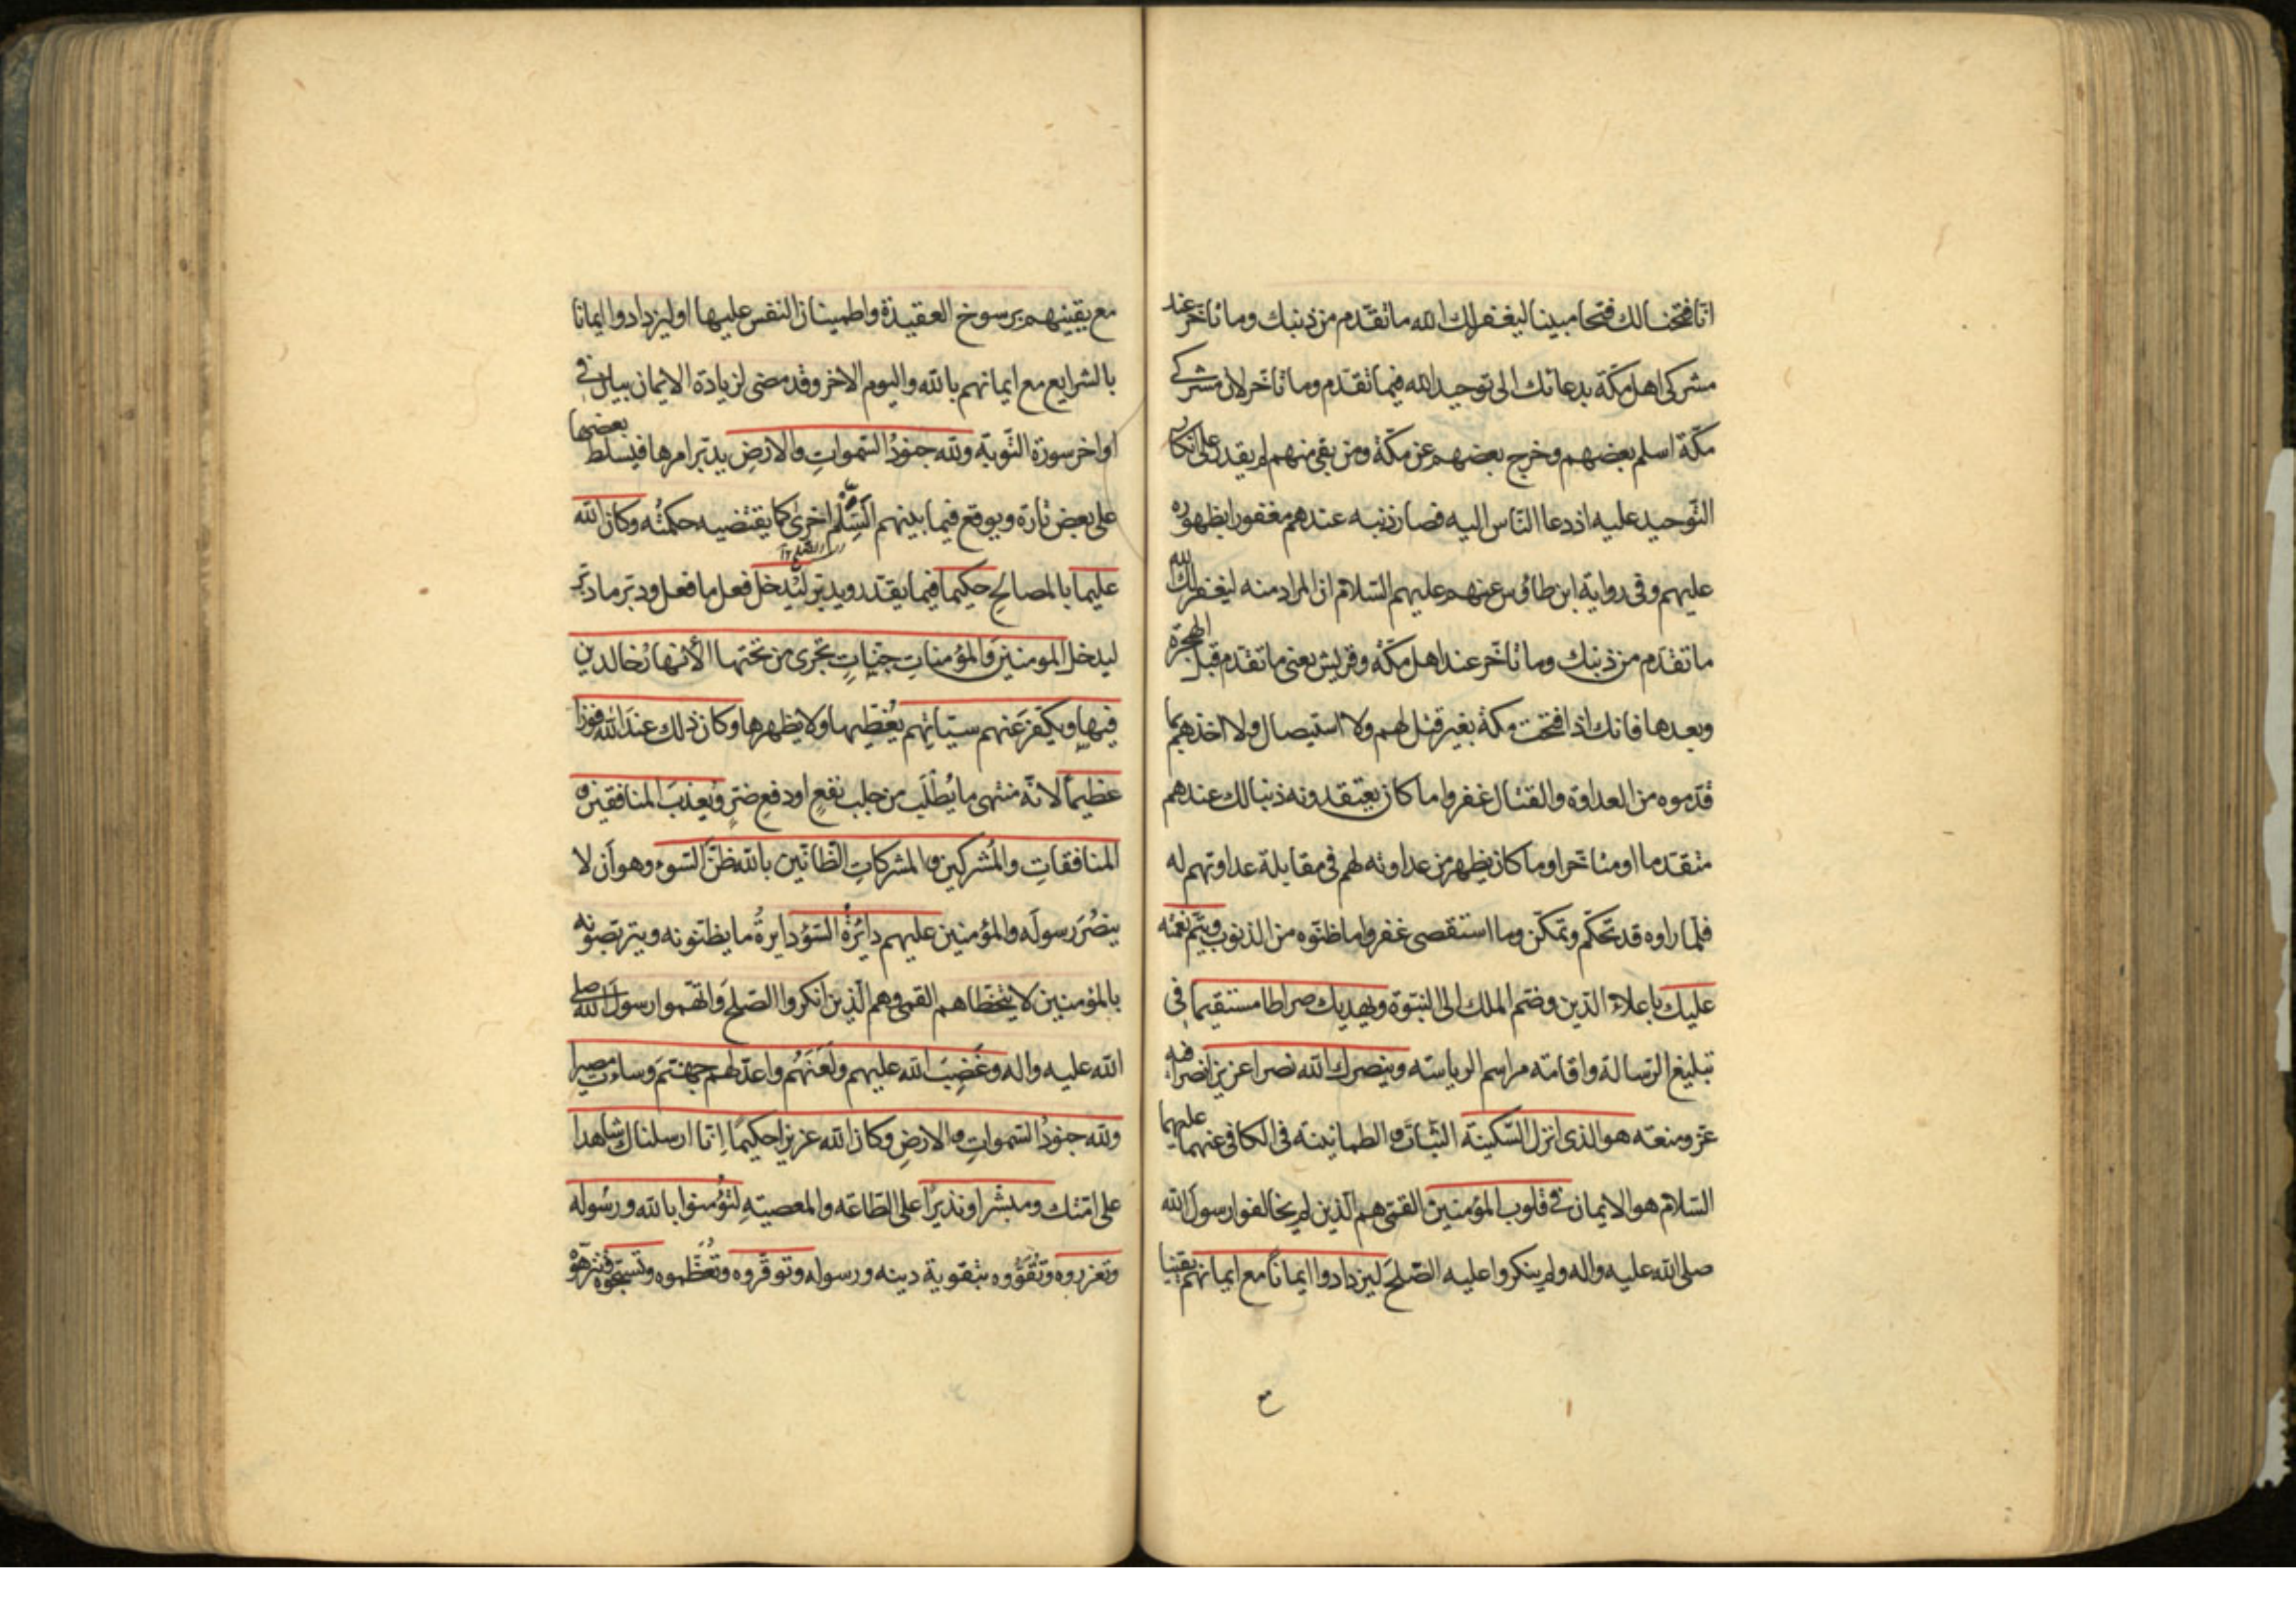 انّا فتحنا لك فتحا مبينا ليغفر لك الله ما تقدّم من ذنبك وما تأخّر عند
مشركى اهل مكّة بدعائك الى توحيد الله فيما تقدّم وما تأخّر لان مشركى
مكّة اسلم بعضهم وخرج بعضهم عن مكّة ومن بقى منهم لم يقدر على انكار
التّوحيد عليه اذ دعا النّاس اليه فصار ذنبه عندهم مغفورا بظهوره
عليهم وفى رواية ابن طاوس عنهم عليهم السّلام ان المراد منه ليغفر لك الله
ما تقدّم من ذنبك وما تأخّر عند اهل مكّة وقريش يعنى ما تقدّم قبل الهجرة
وبعدها فانك اذا فتحت مكة بغير قتل لهم ولا استيصال ولا اخذهم بما
قدّموه من العداوة والقتال غفروا ما كان يعتقدونه ذنبا لك عندهم
متقدّما او متأخّرا وما كان يظهر من عداوته لهم فى مقابلة عداوتهم له
فلمّا راوه قد تحكّم وتمكّن وما استقصى غفروا ما ظنّوه من الذنوب ويتمّ نعمته
عليك باعلاء الدّين وضمّ الملك الى النبّوة ويهديك صراطا مستقيما فى
تبليغ الرّسالة واقامة مراسم الرياسة وينصرك الله نصرا عزيزا نصرا فيه
عزّ ومنعة هو الذى انزل السّكينة الثّبات والطمانينة فى الكافى عنهما عليهما
السّلام هو الايمان فى قلوب المؤمنين القمّى هم الّذين لم يخالفوا رسولَ الله
صلى الله عليه واله ولم ينكروا عليه الصّلحَ ليزدادوا ايمانًا مع ايمانهم يقينا
مع يقينهم برسوخ العقيدة واطمينان النفس عليها او ليزدادوا ايمانا
بالشرايع مع ايمانهم بالله واليوم الاخر وقد مضى لزيادة الايمان بيان فى
اواخر سورة التّوبة ولله جنودُ السّمواتِ والارضِ يدبّر امرها فيسلط بعضها
على بعض تارة ويوقع فيما بينهم السِّلْم اخرىٰ كما يقتضيه حكمتُه وكان الله
عليما بالمصالحِ حكيما فيما يقدّر ويدبّر ليُدخل فعل ما فعل ودبّر ما دبّر
ليدخل المومنينَ والمؤمناتِ جنّاتٍ تجرى من تحتها الأنهارُ خالدين
فيها ويكفّرَ عنهم سيّاتِهم يُغطّيها ولا يظهرها وكان ذلك عندَ الله فوزا
عظيمًا لانّه منتهى ما يُطْلَب من جلب نفعٍ او دفعِ ضرٍّ ويعذبَ المنافقين و
المنافقاتِ والمُشركين والمشركاتِ الظّانّين بالله ظنَّ السّوء وهو اَن لا
ينصُرَ رسولَه والمؤمنين عليهم دائرةُ السّوء دايرةُ ما يظنّونه ويتربّصونه
بالمؤمنين لا يتخطّاهم القمى وهم الّذين انكروا الصّلحَ واتّهموا رسولَ الله صلى
الله عليه واله وغَضِبَ الله عليهم ولَعَنَهُم واعدّ لهم جهنّمَ وساءت مصيرا
ولله جنودُ السّمواتِ والارضِ وكان الله عزيزا حكيمًا اِنّا ارسلناك شاهدا
على امّتك ومبشّرا ونذيرًا على الطّاعة والمعصيةِ لتؤُمنوا بالله ورسُوله
وتعزروه وتُقَوُّوه بتقوية دينه ورسوله وتوقّروه وتُعُظّموه وتسبّحوه تنزّهوه